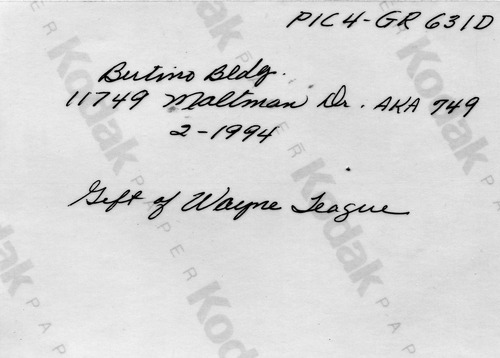 PIC4-GR 631D
Bertino Bldg.
11749 Maltman Dr. AKA 749
2-1994
Gift of Wayne League
Kodak
PAPER
Kodak
PAPER
Kodak
PAPER
Kodak
PAPER
Kodak